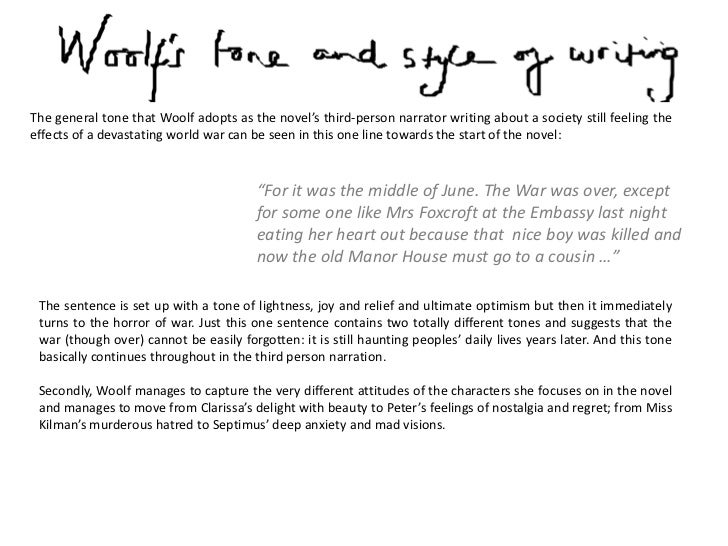 Woolf's tone and style of writing
The general tone that Woolf adopts as the novel’s third-person narrator writing about a society still feeling the
effects of a devastating world war can be seen in this one line towards the start of the novel:
“For it was the middle of June. The War was over, except
for some one like Mrs Foxcroft at the Embassy last night
eating her heart out because that  nice boy was killed and
now the old Manor House must go to a cousin …”
The sentence is set up with a tone of lightness, joy and relief and ultimate optimism but then it immediately
turns to the horror of war. Just this one sentence contains two totally different tones and suggests that the
war (though over) cannot be easily forgotten: it is still haunting peoples’ daily lives years later. And this tone
basically continues throughout in the third person narration.
Secondly, Woolf manages to capture the very different attitudes of the characters she focuses on in the novel
and manages to move from Clarissa’s delight with beauty to Peter’s feelings of nostalgia and regret; from Miss
Kilman’s murderous hatred to Septimus’ deep anxiety and mad visions.